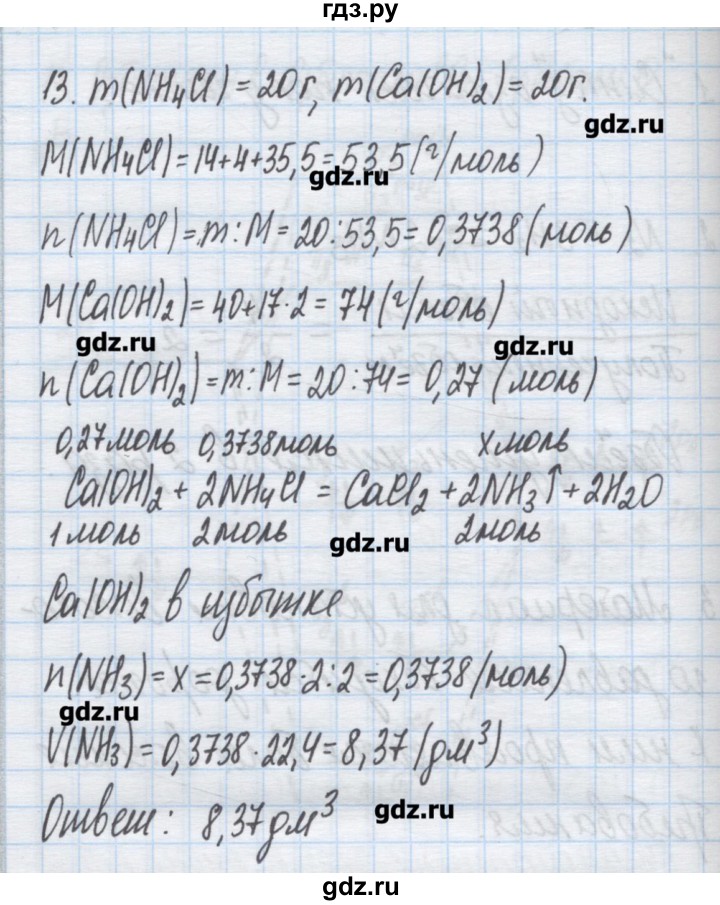 гдз.ру
13. m(NH₄Cl) = 20г, m(Ca(OH)₂) = 20г.
gdz.ru
M(NH₄Cl) = 14+4+35,5 = 53,5 (г/моль)
gdz.ru
n(NH₄Cl) = m:M = 20:53,5 = 0,3738 (моль)
M(Ca(OH)₂) = 40+17·2 = 74 (г/моль)
gdz.ru gdz.ru
n(Ca(OH)₂) = m:M = 20:74 = 0,27 (моль)
0,27моль 0,3738моль x моль
Ca(OH)₂ + 2NH₄Cl = CaCl₂ + 2NH₃↑ + 2H₂O
1 моль 2моль gdz.ru 2моль
Ca(OH)₂ в избытке
n(NH₃) = x = 0,3738·2:2 = 0,3738 (моль)
gdz.ru
V(NH₃) = 0,3738·22,4 = 8,37 (дм³)
Ответ: 8,37дм³
gdz.ru
gdz.ru